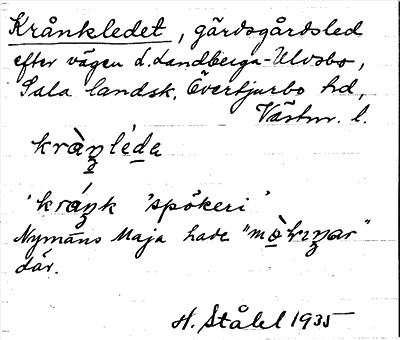 Krånkledet, gärdsgårdsled
efter vägen L. Landberga-Ulvsbo,
Sala landsk. Övertjurbo hd,
Västm. l.
kràŋléda
kráŋk 'spökeri'
Nymans Maja hade "
där.
H. Ståhl 1935